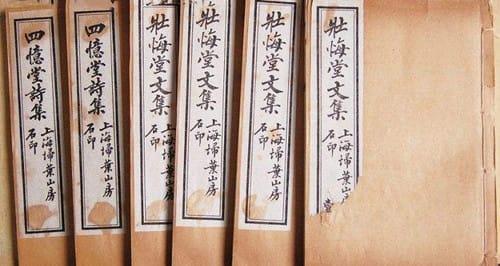 四憶堂詩集
上海掃葉山房
石印
四憶堂詩集
上海掃葉山房
石印
壯悔堂文集
上海掃葉山房
石印
壯悔堂文集
上海掃葉山房
石印
壯悔堂文集
上海掃葉山房
石印
壯悔堂文集
上海掃葉山房
石印